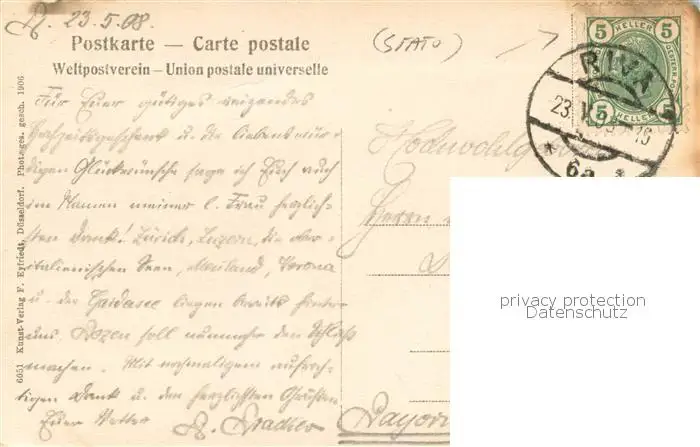 R. 23.5.08.
Postkarte — Carte postale
Weltpostverein – Union postale universelle
(STATO)
5 HELLER 5
5 HELLER 5
RIVA
23. V.
6a
Für Euer gütiges reizendes
Hochzeitsgeschenk u. die liebenswür-
digen Glückwünsche sage ich Euch auch
im Namen meiner l. Frau herzlich-
sten Dank! Zürich, Luzern, die ober-
italienischen Seen, Mailand, Verona
u. der Gardasee liegen bereits hinter
uns, Bozen soll nunmehr den Schluß
machen. Mit nochmaligem aufrich-
tigen Dank u. den herzlichsten Grüßen
Euer Vetter
Hochwohlgeboren
Herrn
Bayern
6051 Kunst-Verlag F. Eyfriedt, Düsseldorf. Photogr. gesch. 1906
privacy protection
Datenschutz